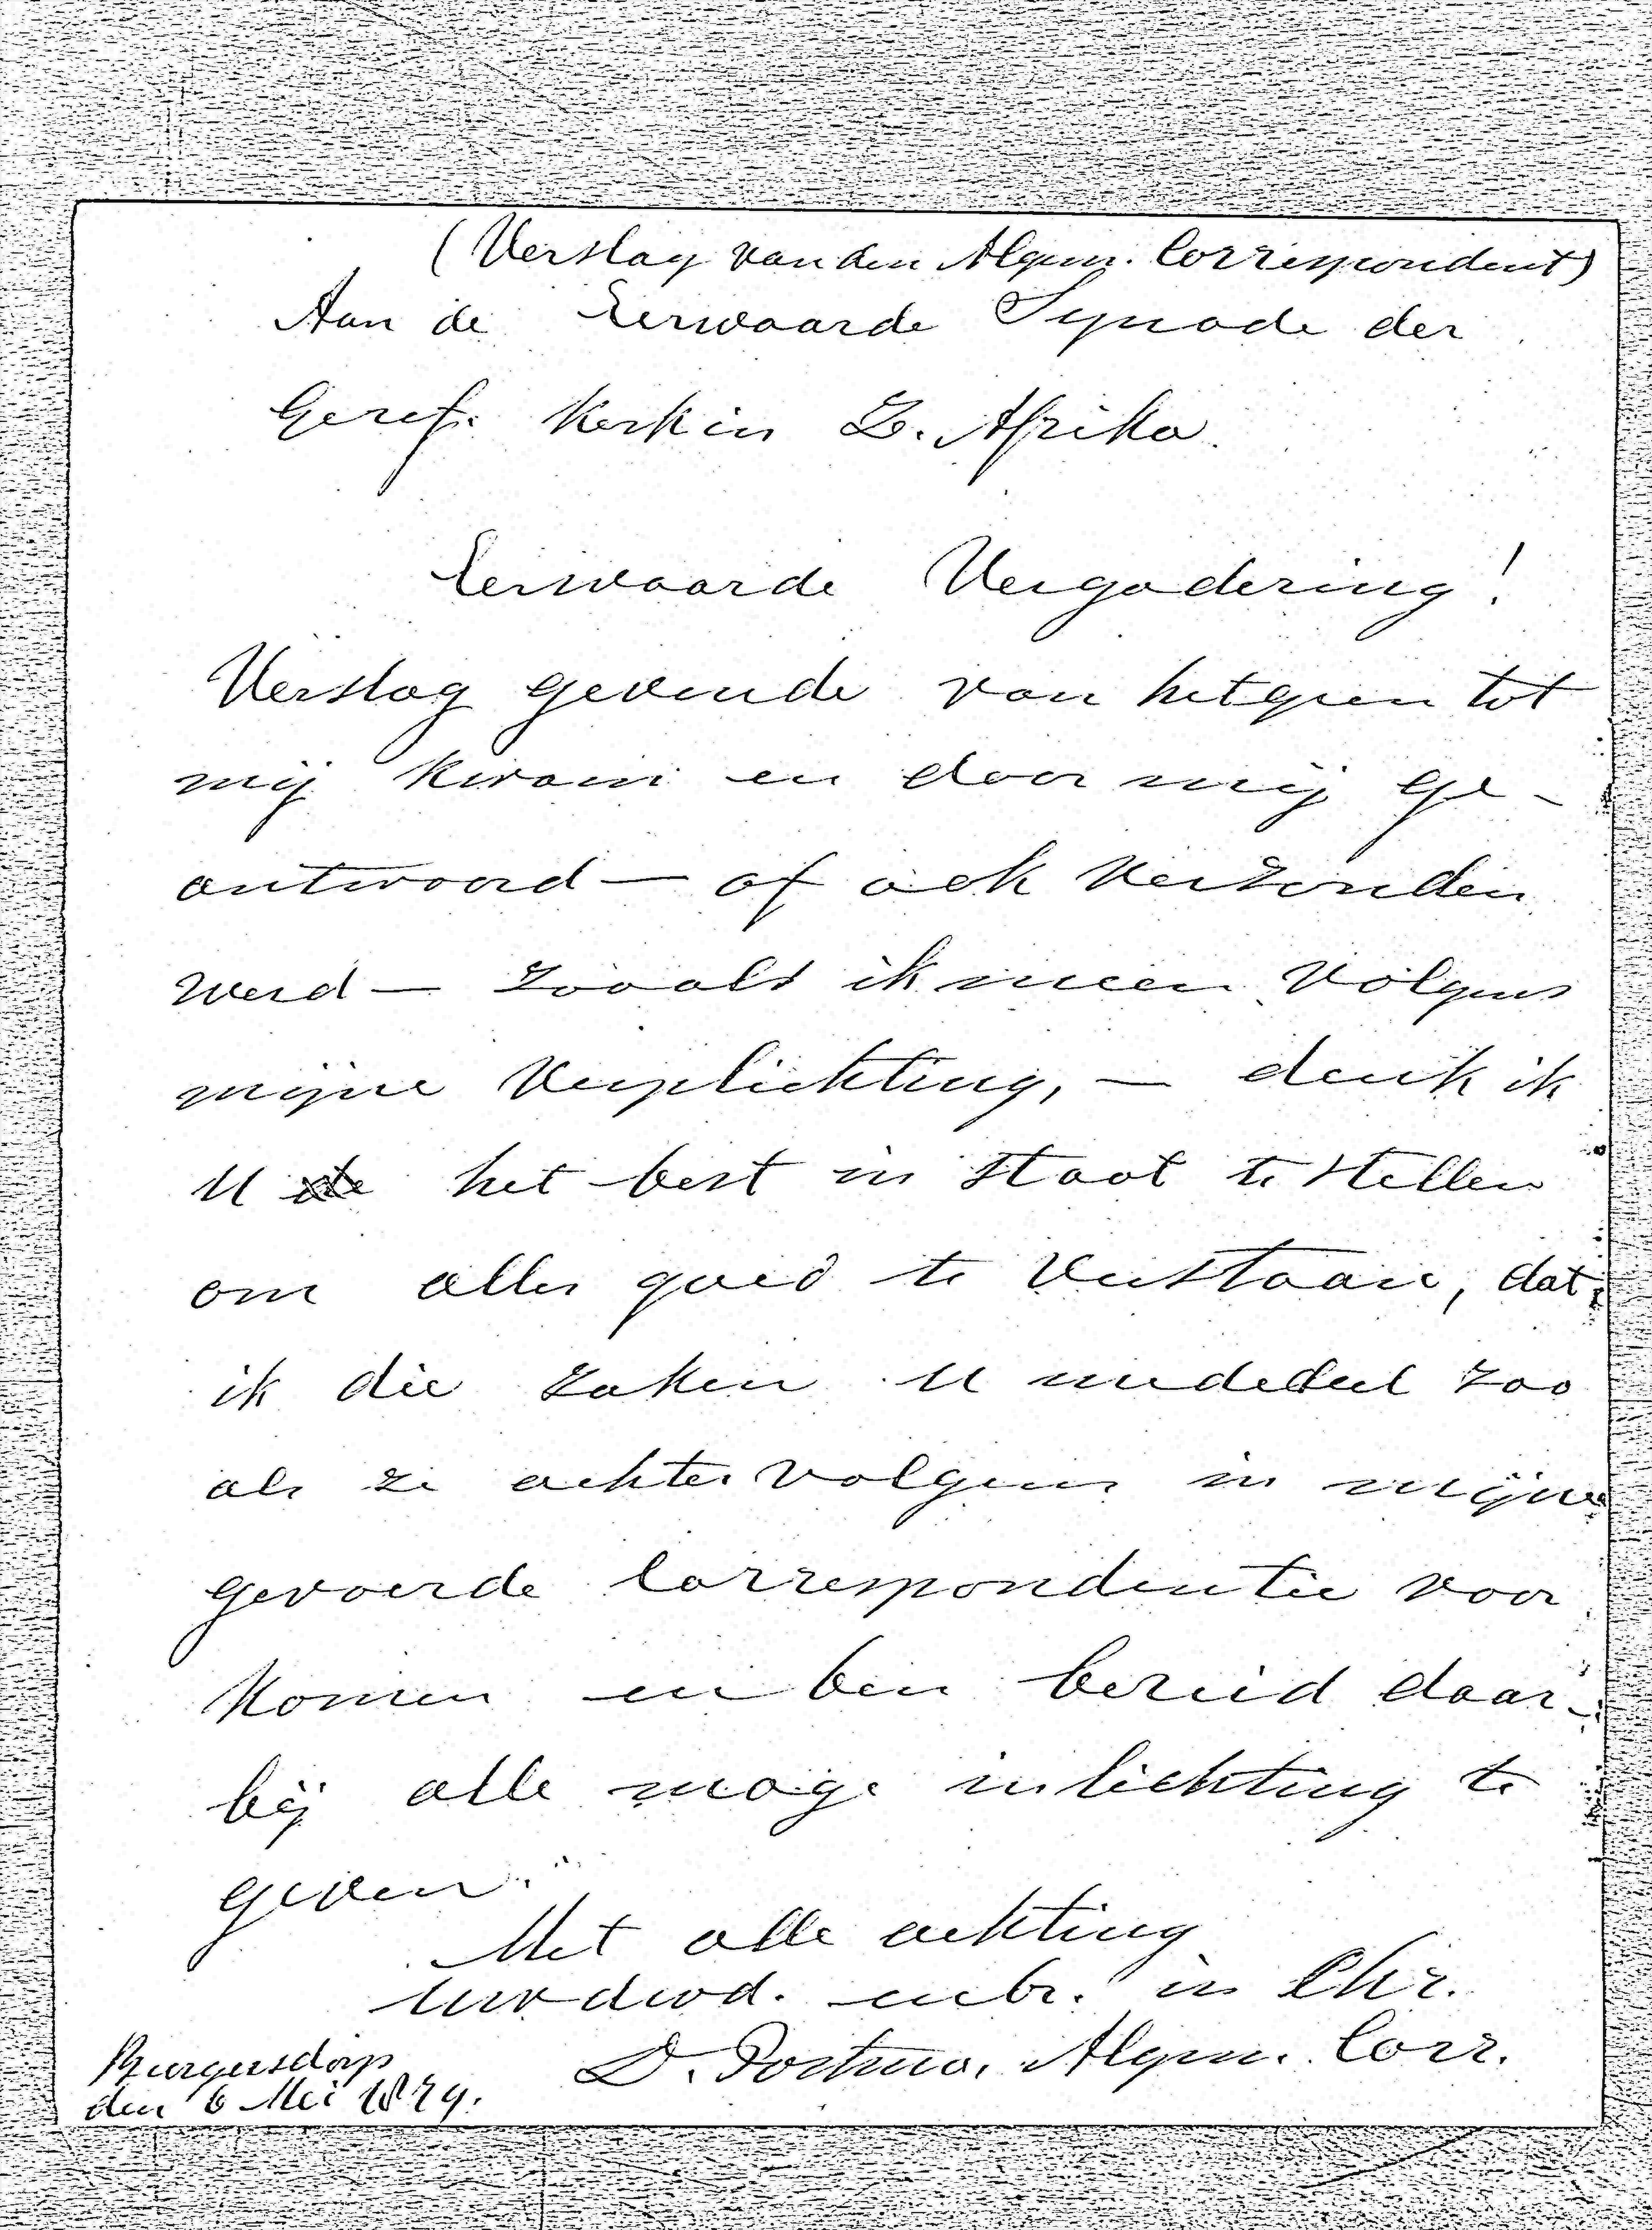 (Verslag van den Algem. Correspondent)
Aan de Eerwaarde Synode der
Geref. Kerk in Z. Afrika.
Eerwaarde Vergadering!
Verslag gevende van hetgeen tot
mij kwam en door mij ge-
antwoord — of ook verzonden
werd — zooals ik meen volgens
mijne verplichting, — denk ik
U het best in staat te stellen
om alles goed te verstaan, dat
ik die zaken U mededeel zoo
als ze achtervolgens in mijne
gevoerde Correspondentie voor
komen en ben bereid daar-
bij alle moge inlichting te
geven.
Met alle achting
Uw dwd. mbr. in Chr.
D. Postma, Algem. Corr.
Burgersdorp
den 6 Mei 1879.